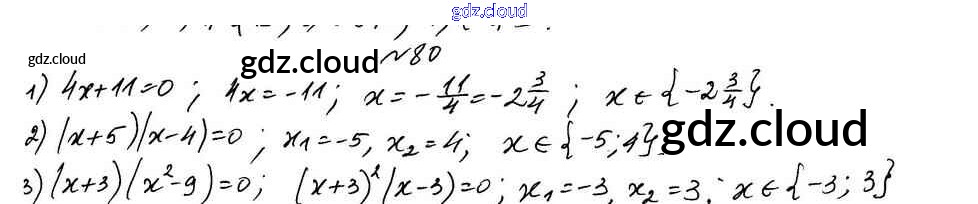 gdz.cloud
gdz.cloud gdz.cloud №80
1) 4x+11=0 ; 4x=-11; x=-\frac{11}{4}=-2\frac{3}{4} ; x∈{-2\frac{3}{4}}.
2) (x+5)(x-4)=0 ; x₁=-5, x₂=4; x∈{-5;4}. gdz.cloud
3) (x+3)(x²-9)=0; (x+3)²(x-3)=0; x₁=-3, x₂=3; x∈{-3; 3}